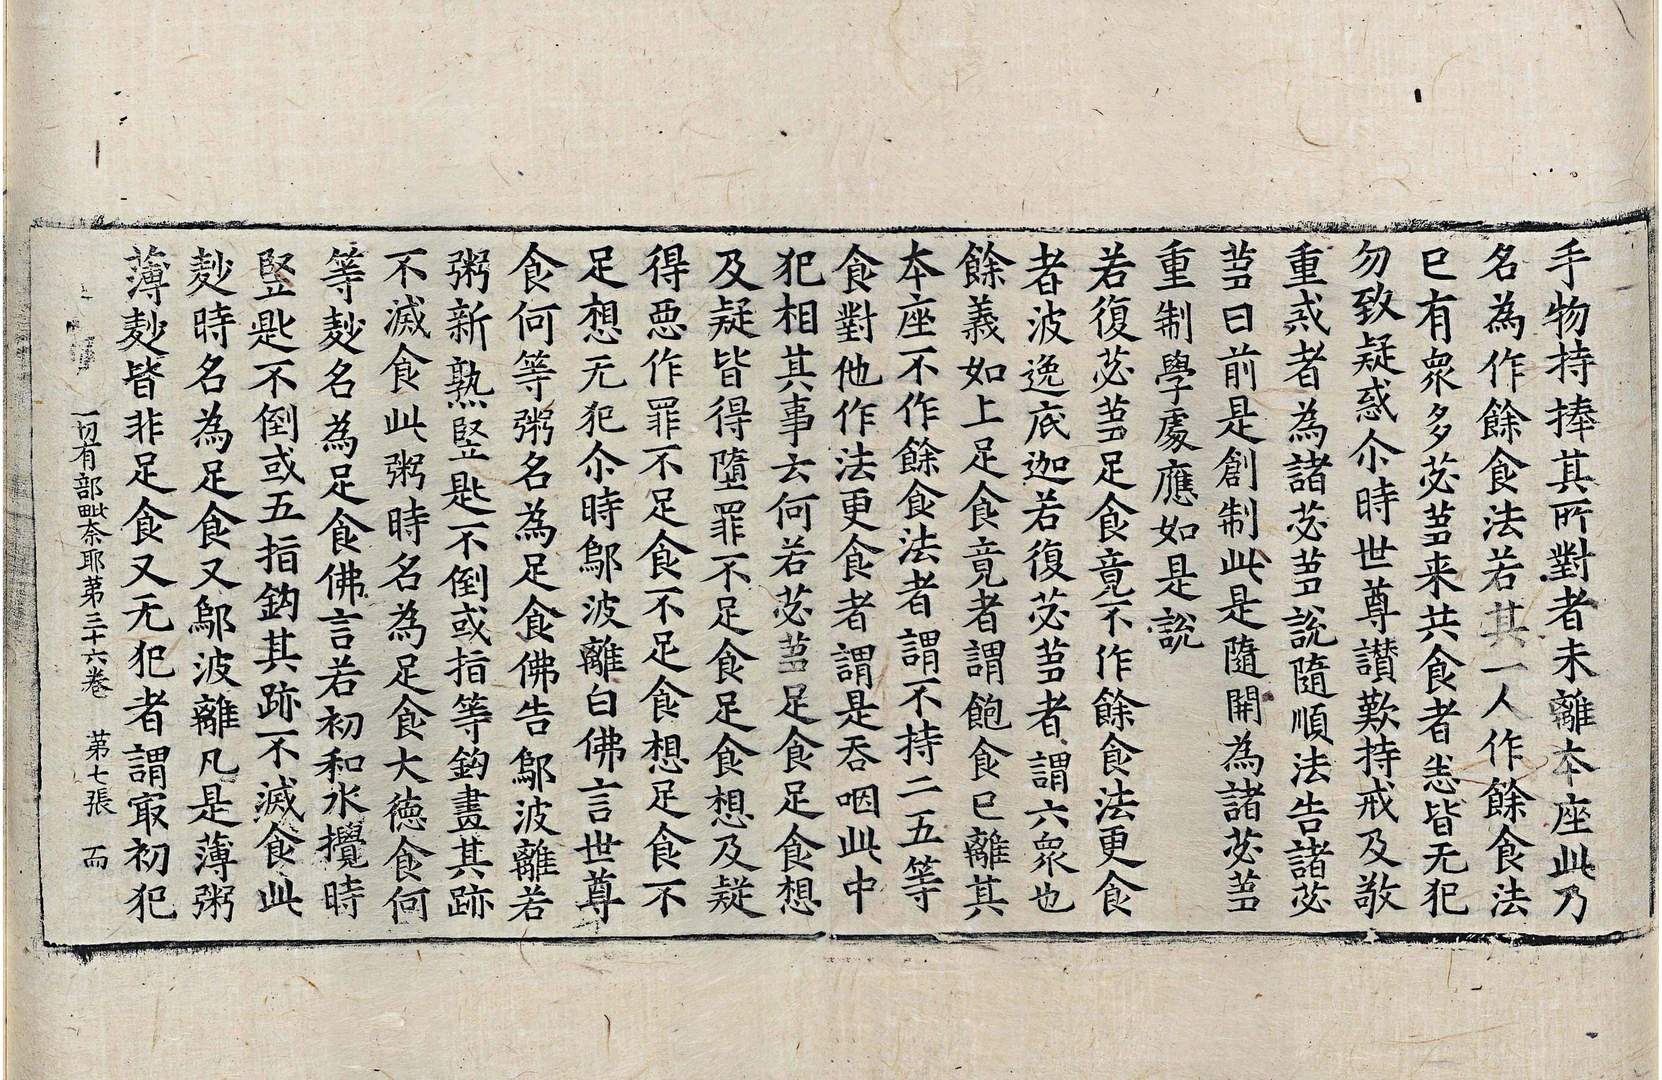 手物持捧其所對者未離本座此乃
名為作餘食法若其一人作餘食法
已有衆多苾芻来共食者悉皆无犯
勿致疑惑尒時世尊讃歎持戒及敬
重戒者為諸苾芻説隨順法告諸苾
芻曰前是創制此是隨開為諸苾芻
重制學處應如是說
若復苾芻足食竟不作餘食法更食
者波逸底迦若復苾芻者謂六衆也
餘義如上足食竟者謂飽食已離其
本座不作餘食法者謂不持二五等
食對他作法更食者謂是吞咽此中
犯相其事云何若苾芻足食足食想
及疑皆得墮罪不足食足食想及疑
得惡作罪不足食不足食想足食不
足想无犯尒時鄔波離白佛言世尊
食何等粥名為足食佛告鄔波離若
粥新熟竪匙不倒或指等鉤畫其跡
不滅食此粥時名為足食大徳食何
等麨名為足食佛言若初和水攪時
竪匙不倒或五指鉤其跡不滅食此
麨時名為足食又鄔波離凡是薄粥
薄麨皆非足食又无犯者謂㝡初犯
一切有部毗奈耶第三十六卷 第七張 而